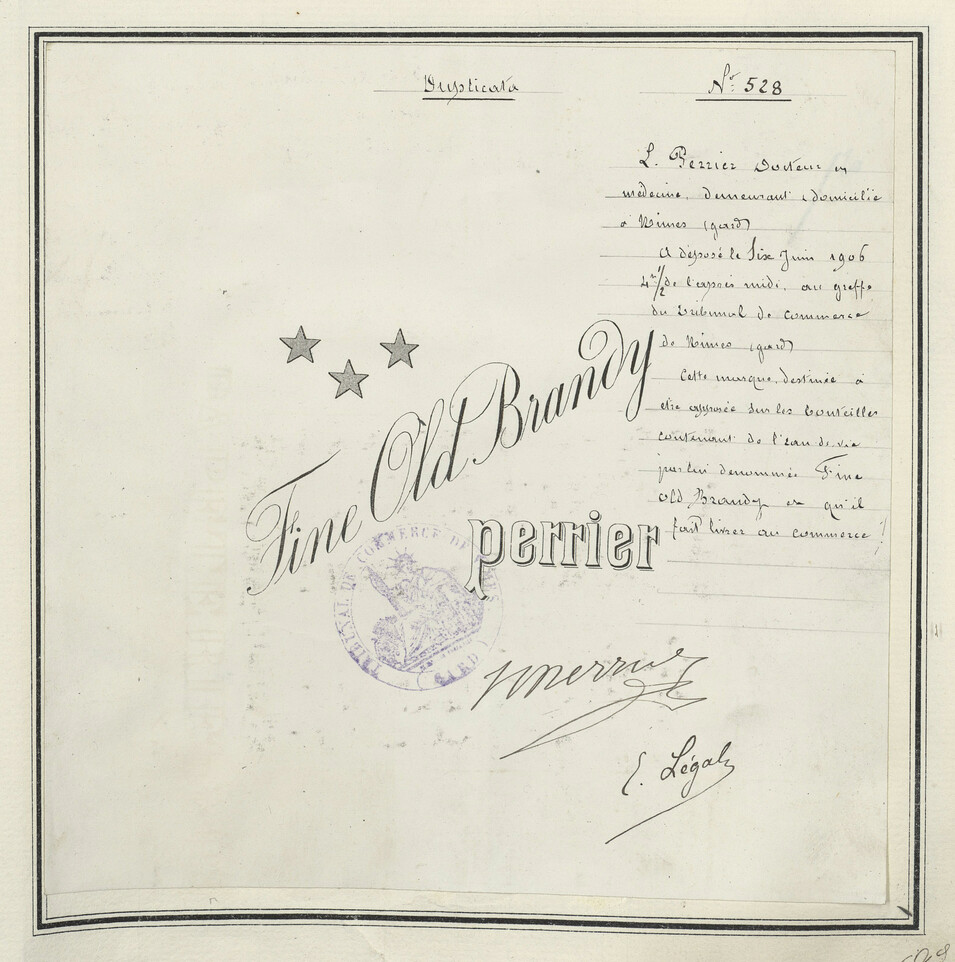 Duplicata
N° 528
L. Perrier Docteur en
médecine, demeurant & domicilié
à Nimes (gard)
A déposé le Six Juin 1906
4 h 1/2 de l'après midi, au greffe
du Tribunal de commerce
de Nimes (gard)
Cette marque, destinée à
etre apposée sur les bouteilles
contenant de l'eau de vie
par lui denommée Fine
Old Brandy et qu'il
fait livrer au commerce
Fine Old Brandy
perrier
TRIBUNAL DE COMMERCE DE NIMES
(GARD)
E. Légal